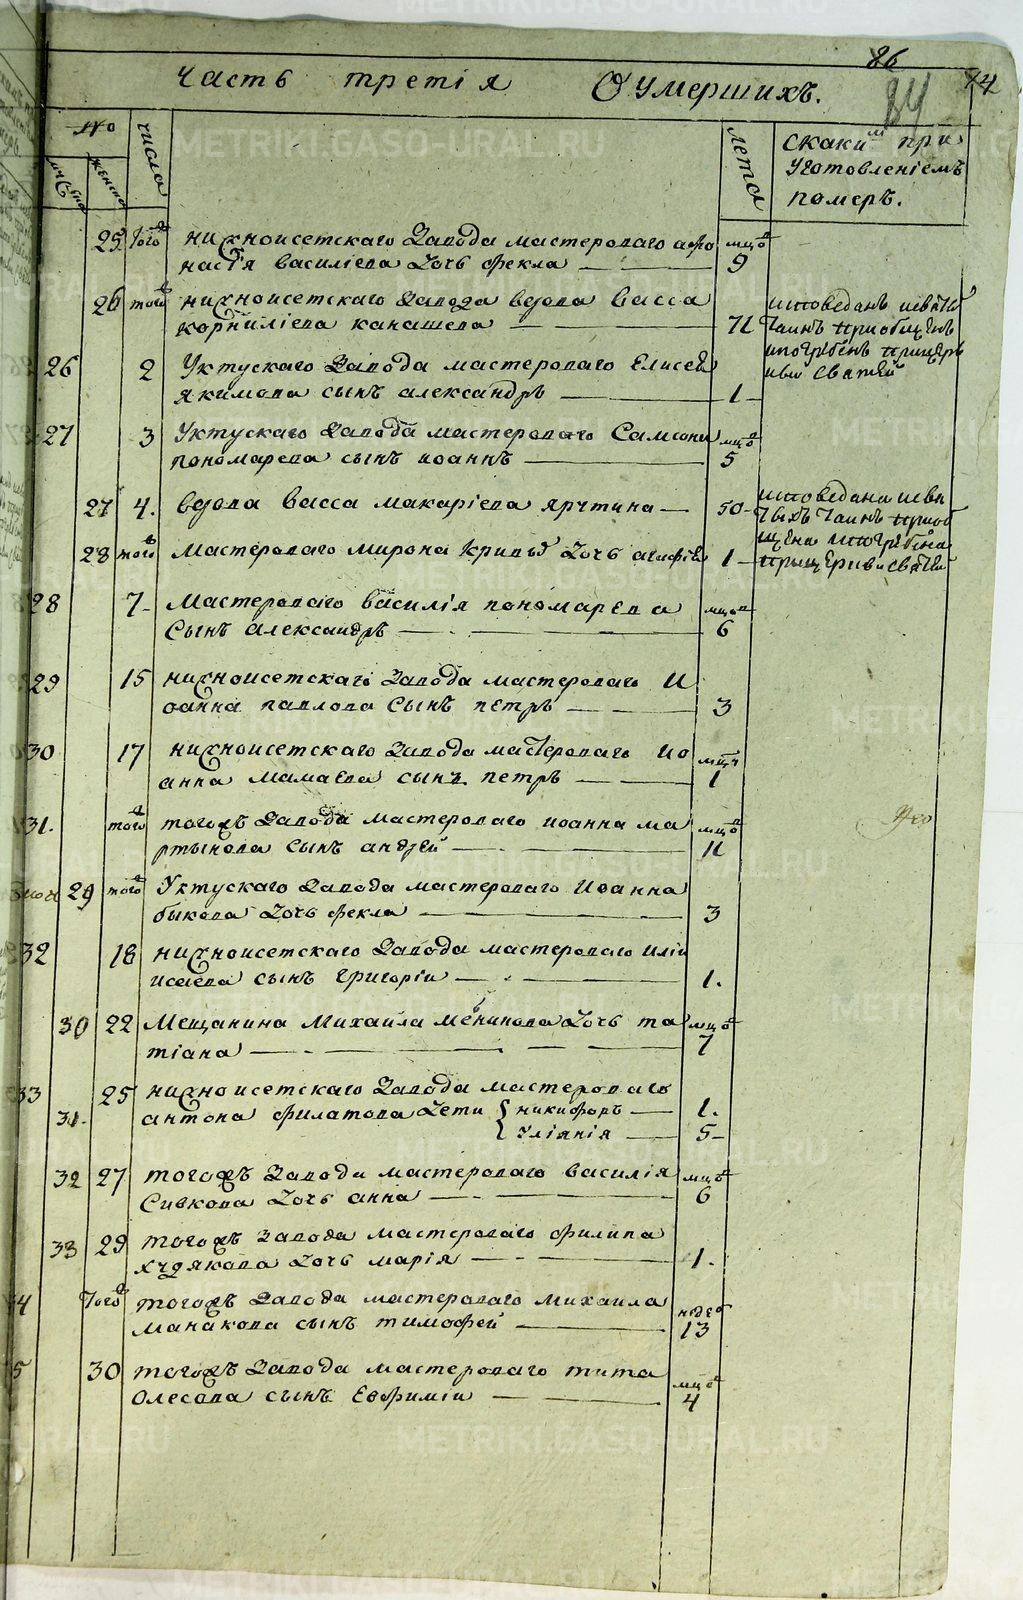 86
84
74
Часть третія О умершихъ.
№
мужеска
женска
числа
лета
скаким при
уготовленіемъ
померъ.
25 того нижноисетскаго завода мастероваго афо мцов
насія василіева дочь фекла 9
26 того нижноисетскаго завода вдова васса
корниліева канашева 71
исповеданъ исвятых
таинъ приобщенъ
ипогребенъ прицерк
ви святей
26 2 Уктускаго завода мастероваго Елисея
якимова сынъ александръ 1
27 3 Уктускаго завода мастероваго Самсона мцов
пономарева сынъ иоаннъ 5
27 4. вдова васса макаріева 50
исповедана исвя
тыхъ таинъ приоб
щена ипогребена
прицеркви святей
28 того мастероваго мирона дочь агафія 1
28 7 мастероваго василія пономарева мцов
сынъ александръ 6
29 15 нижноисетскаго завода мастероваго И
оанна павлова сынъ петръ 3
30 17 нижноисетскаго завода мастероваго ио мцъ
анна мамаева сынъ петръ 1
31. того тогожъ завода мастероваго иоанна ма мцов
ртынова сынъ андрей 11
29 того Уктускаго завода мастероваго Иоанна
быкова дочь фекла 3
32 18 нижноисетскаго завода мастероваго иліи
исаева сынъ григоріи 1.
30 22 мещанина михаила дочь та мцов
тіана 7
33 25 нижноисетскаго завода мастероваго
31. антона филатова дети { никифоръ 1.
уліянія 5
32 27 тогожъ завода мастероваго василія мцов
сивкова дочь анна 6
33 29 тогожъ завода мастероваго филипа
худякова дочь марія 1.
4 того тогожъ завода мастероваго михаила недел
манакова сынъ тимофей 13
5 30 тогожъ завода мастероваго тита мцов
олесова сынъ Евфиміи 4
METRIKI.GASO-URAL.RU